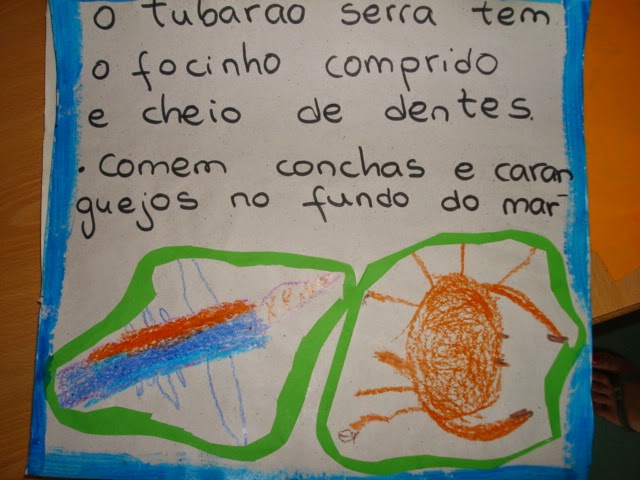 o tubarão serra tem
o focinho comprido
e cheio de dentes.
• comem conchas e caran
guejos no fundo do mar